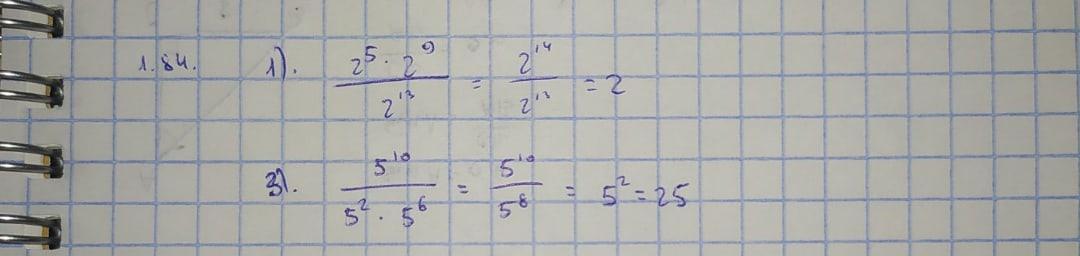 1.84. 1). \frac{2^5 \cdot 2^9}{2^{13}} = \frac{2^{14}}{2^{13}} = 2
3). \frac{5^{10}}{5^2 \cdot 5^6} = \frac{5^{10}}{5^8} = 5^2 = 25